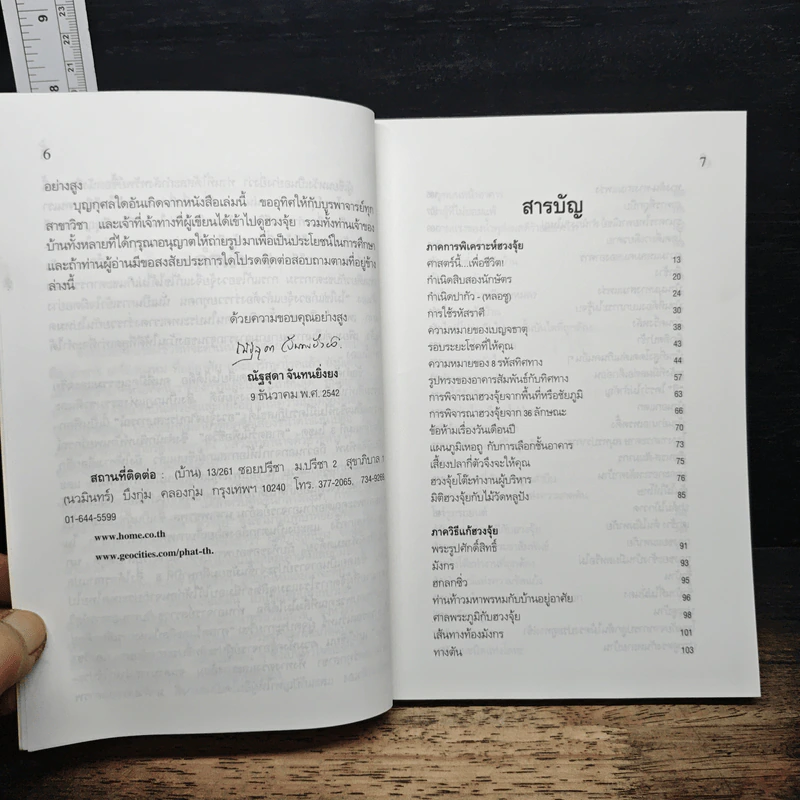 6
อย่างสูง
บุญกุศลใดอันเกิดจากหนังสือเล่มนี้ ขออุทิศให้กับบูรพาจารย์ทุก
สาขาวิชา และเจ้าที่เจ้าทางที่ผู้เขียนได้เข้าไปดูฮวงจุ้ย รวมทั้งท่านเจ้าของ
บ้านทั้งหลายที่ได้กรุณาอนุญาตให้ถ่ายรูปมาเพื่อเป็นประโยชน์ในการศึกษา
และถ้าท่านผู้อ่านมีข้อสงสัยประการใดโปรดติดต่อสอบถามตามที่อยู่ข้าง
ล่างนี้
ด้วยความขอบคุณอย่างสูง
ณัฐสุดา จันทนยิ่งยง
9 ธันวาคม พ.ศ. 2542
สถานที่ติดต่อ : (บ้าน) 13/261 ซอยปรีชา ม.ปรีชา 2 สุขาภิบาล 1
(นวมินทร์) บึงกุ่ม คลองกุ่ม กรุงเทพฯ 10240 โทร. 377-2065, 734-9266
01-644-5599
www.home.co.th
www.geocities.com/phat-th.
7
สารบัญ
ภาคการพิเคราะห์ฮวงจุ้ย
ศาสตร์นี้...เพื่อชีวิต! 13
กำเนิดสิบสองนักษัตร 20
กำเนิดปากัว - (หลอซู) 24
การใช้รหัสราศี 30
ความหมายของเบญจธาตุ 38
รอบระยะโชคที่ให้คุณ 43
ความหมายของ 8 รหัสทิศทาง 44
รูปทรงของอาคารสัมพันธ์กับทิศทาง 57
การพิจารณาฮวงจุ้ยจากพื้นที่หรือชัยภูมิ 63
การพิจารณาฮวงจุ้ยจาก 36 ลักษณะ 66
ข้อห้ามเรื่องวันเดือนปี 70
แผนภูมิเหอถู กับการเลือกชั้นอาคาร 73
เลี้ยงปลากี่ตัวจึงจะให้คุณ 75
ฮวงจุ้ยโต๊ะทำงานผู้บริหาร 76
มิติฮวงจุ้ยกับไม้วัดหลูปัง 85
ภาควิธีแก้ฮวงจุ้ย
พระรูปศักดิ์สิทธิ์ 91
มังกร 93
ฮกลกซิ่ว 95
ท่านท้าวมหาพรหมกับบ้านอยู่อาศัย 96
ศาลพระภูมิกับฮวงจุ้ย 98
เส้นทางท้องมังกร 101
ทางตัน 103
9
8
23
22
21